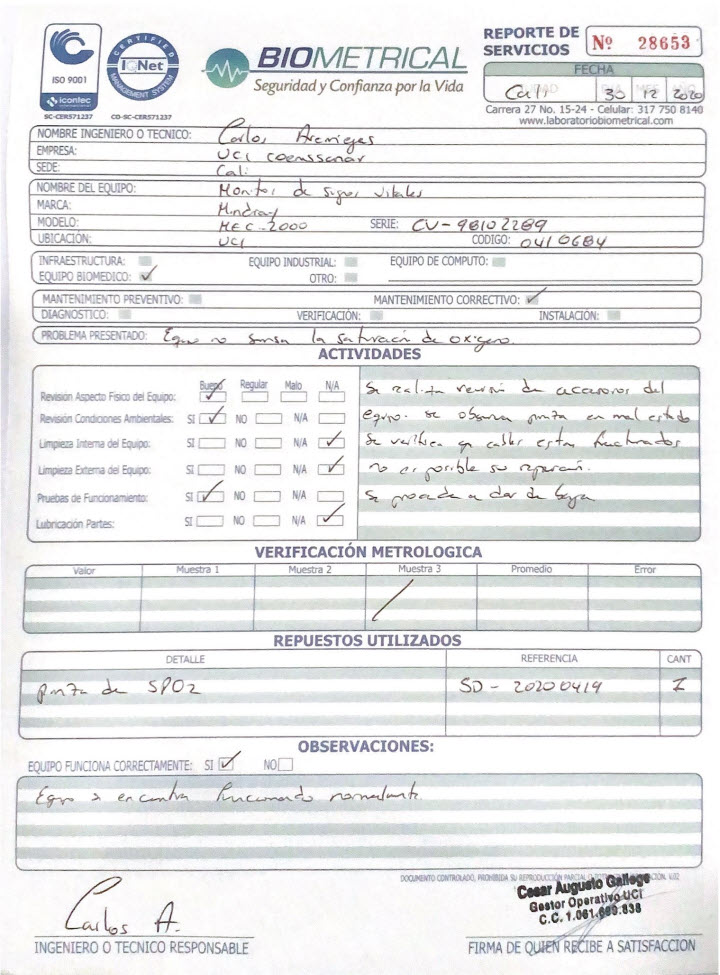 REPORTE DE SERVICIOS
Nº 28653
ISO 9001
icontec
SC-CER571237
CERTIFIED
IQNet
MANAGEMENT SYSTEM
CO-SC-CER571237
BIOMETRICAL
Seguridad y Confianza por la Vida
FECHA
Cali 30 12 2020
Carrera 27 No. 15-24 - Celular: 317 750 8140
www.laboratoriobiometrical.com
NOMBRE INGENIERO O TECNICO: Carlos
EMPRESA: UCI
SEDE: Cali
NOMBRE DEL EQUIPO: Monitor de signos vitales
MARCA: Mindray
MODELO: MEC-2000 SERIE: CV-98102289
UBICACIÓN: UCI CODIGO: 0410684
INFRAESTRUCTURA: EQUIPO INDUSTRIAL: EQUIPO DE COMPUTO:
EQUIPO BIOMEDICO: ✓ OTRO:
MANTENIMIENTO PREVENTIVO: MANTENIMIENTO CORRECTIVO: ✓
DIAGNOSTICO: VERIFICACIÓN: INSTALACIÓN:
PROBLEMA PRESENTADO: Equipo no sensa la saturación de oxigeno.
ACTIVIDADES
Bueno Regular Malo N/A
Revisión Aspecto Fisico del Equipo: ✓
Revisión Condiciones Ambientales: SI ✓ NO N/A
Limpieza Interna del Equipo: SI NO N/A ✓
Limpieza Externa del Equipo: SI NO N/A ✓
Pruebas de Funcionamiento: SI ✓ NO N/A
Lubricación Partes: SI NO N/A ✓
Se realiza revisión de accesorios del
equipo. se observa pinza en mal estado
se verifica q cables estan fracturados
no es posible su reparación.
Se procede a dar de baja
VERIFICACIÓN METROLOGICA
Valor Muestra 1 Muestra 2 Muestra 3 Promedio Error
/
REPUESTOS UTILIZADOS
DETALLE REFERENCIA CANT
pinza de SPO2 SD-20200419 1
OBSERVACIONES:
EQUIPO FUNCIONA CORRECTAMENTE: SI ✓ NO
Equipo se encuentra funcionando normalmente.
DOCUMENTO CONTROLADO, PROHIBIDA SU REPRODUCCIÓN PARCIAL O
Cesar Augusto Gallego
Gestor Operativo UCI
Carlos A.
INGENIERO O TECNICO RESPONSABLE
FIRMA DE QUIEN RECIBE A SATISFACCION